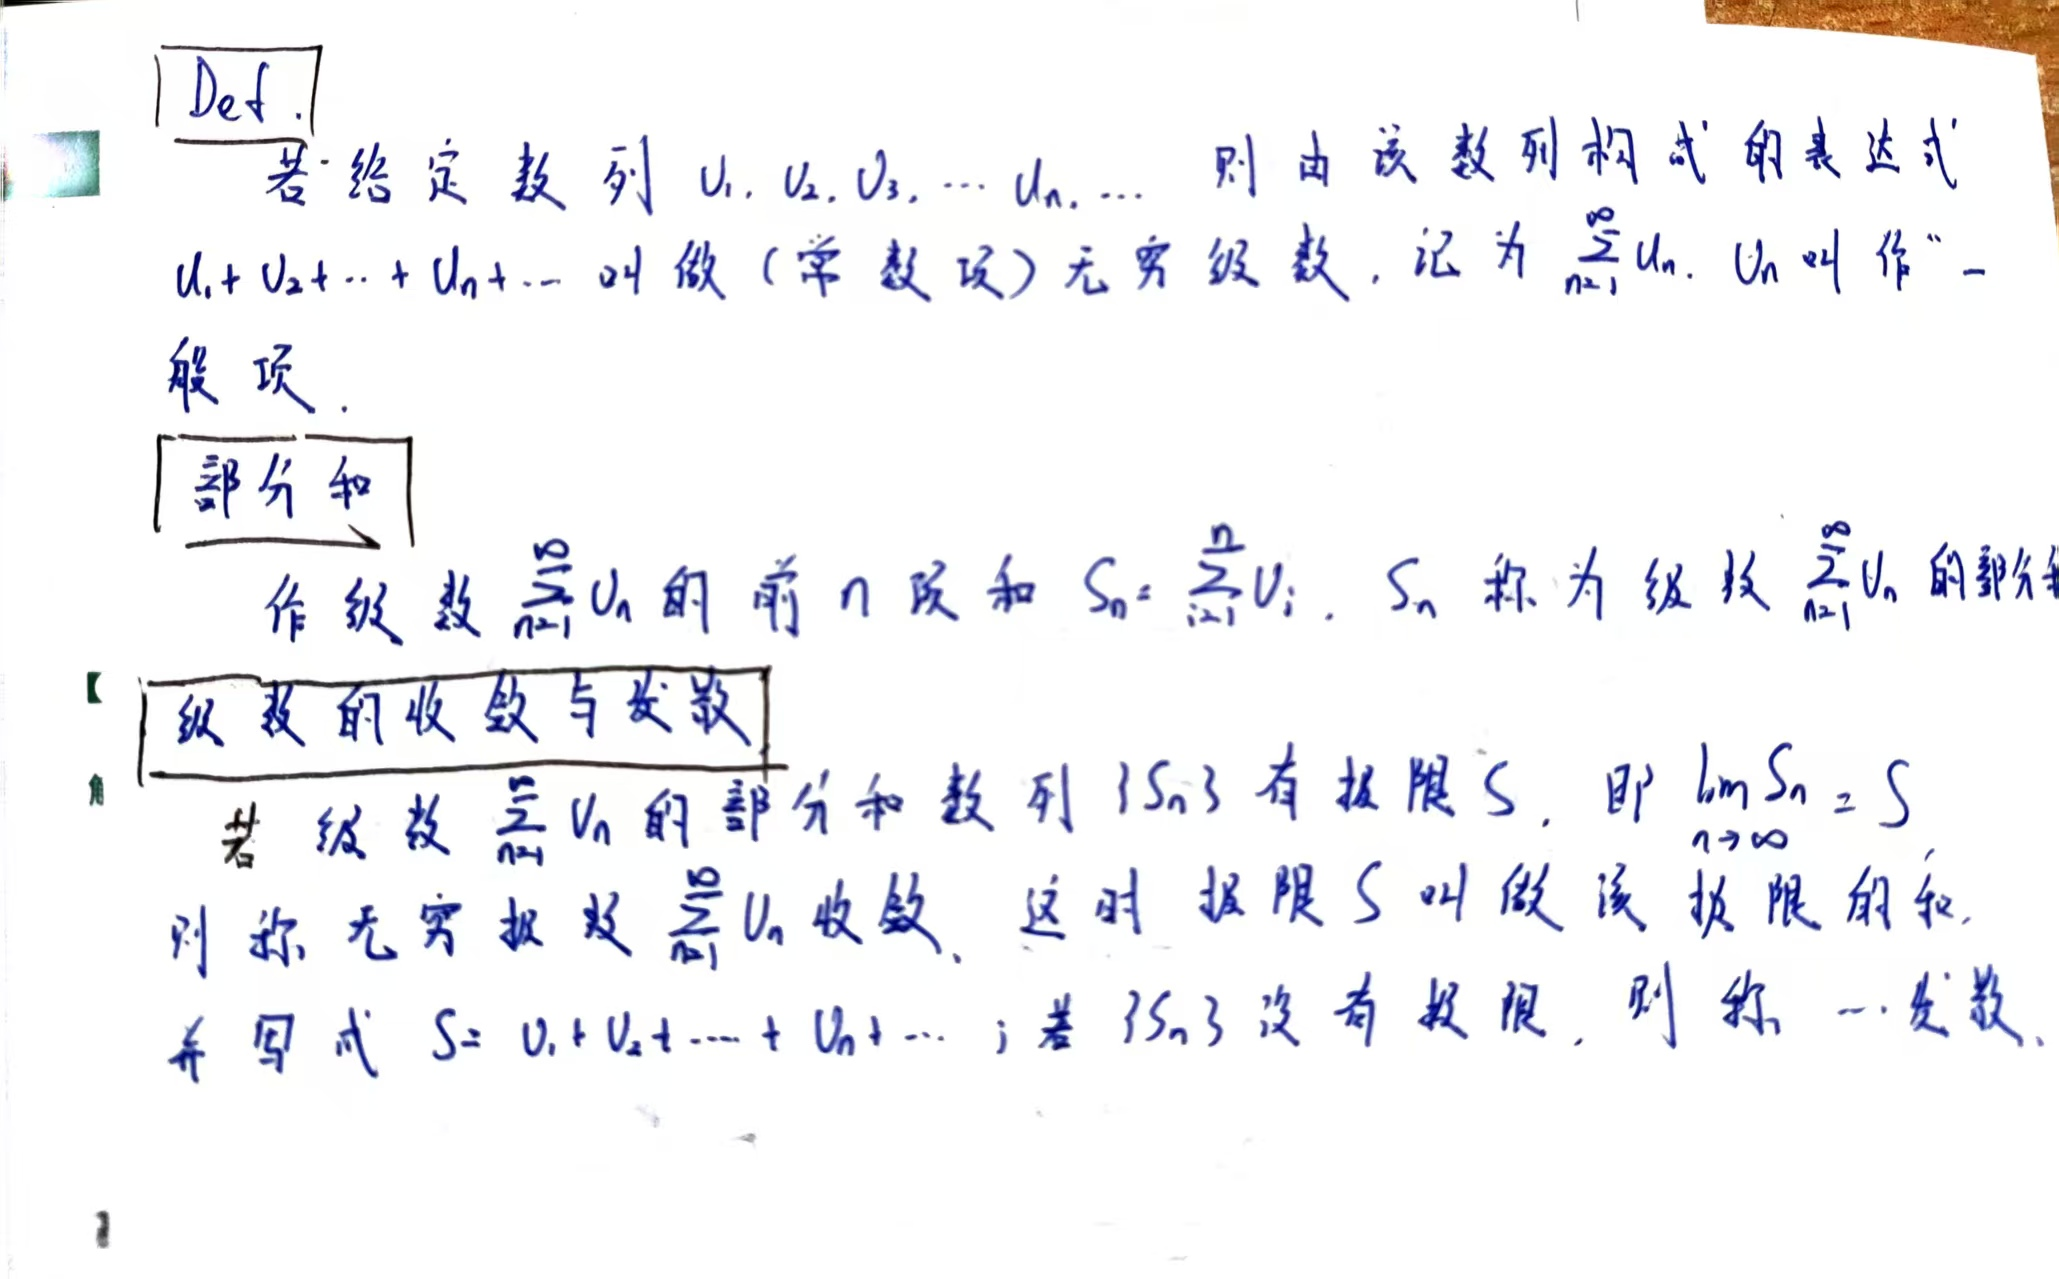 Def.
若给定数列 U₁, U₂, U₃, … Un, … 则由该数列构成的表达式
U₁+U₂+…+Un+… 叫做(常数项)无穷级数,记为 ∑_{n=1}^{∞} Un. Un叫作“一
般项.
部分和
作级数 ∑_{n=1}^{∞} Un 的前n项和 Sn=∑_{i=1}^{n} Ui. Sn 称为级数 ∑_{n=1}^{∞} Un 的部分和
级数的收敛与发散
若级数 ∑_{n=1}^{∞} Un 的部分和数列{Sn}有极限S, 即 lim_{n→∞} Sn=S,
则称无穷级数 ∑_{n=1}^{∞} Un 收敛、这时极限S叫做该极限的和,
并写成 S=U₁+U₂+……+Un+… ;若{Sn}没有极限,则称…发散、